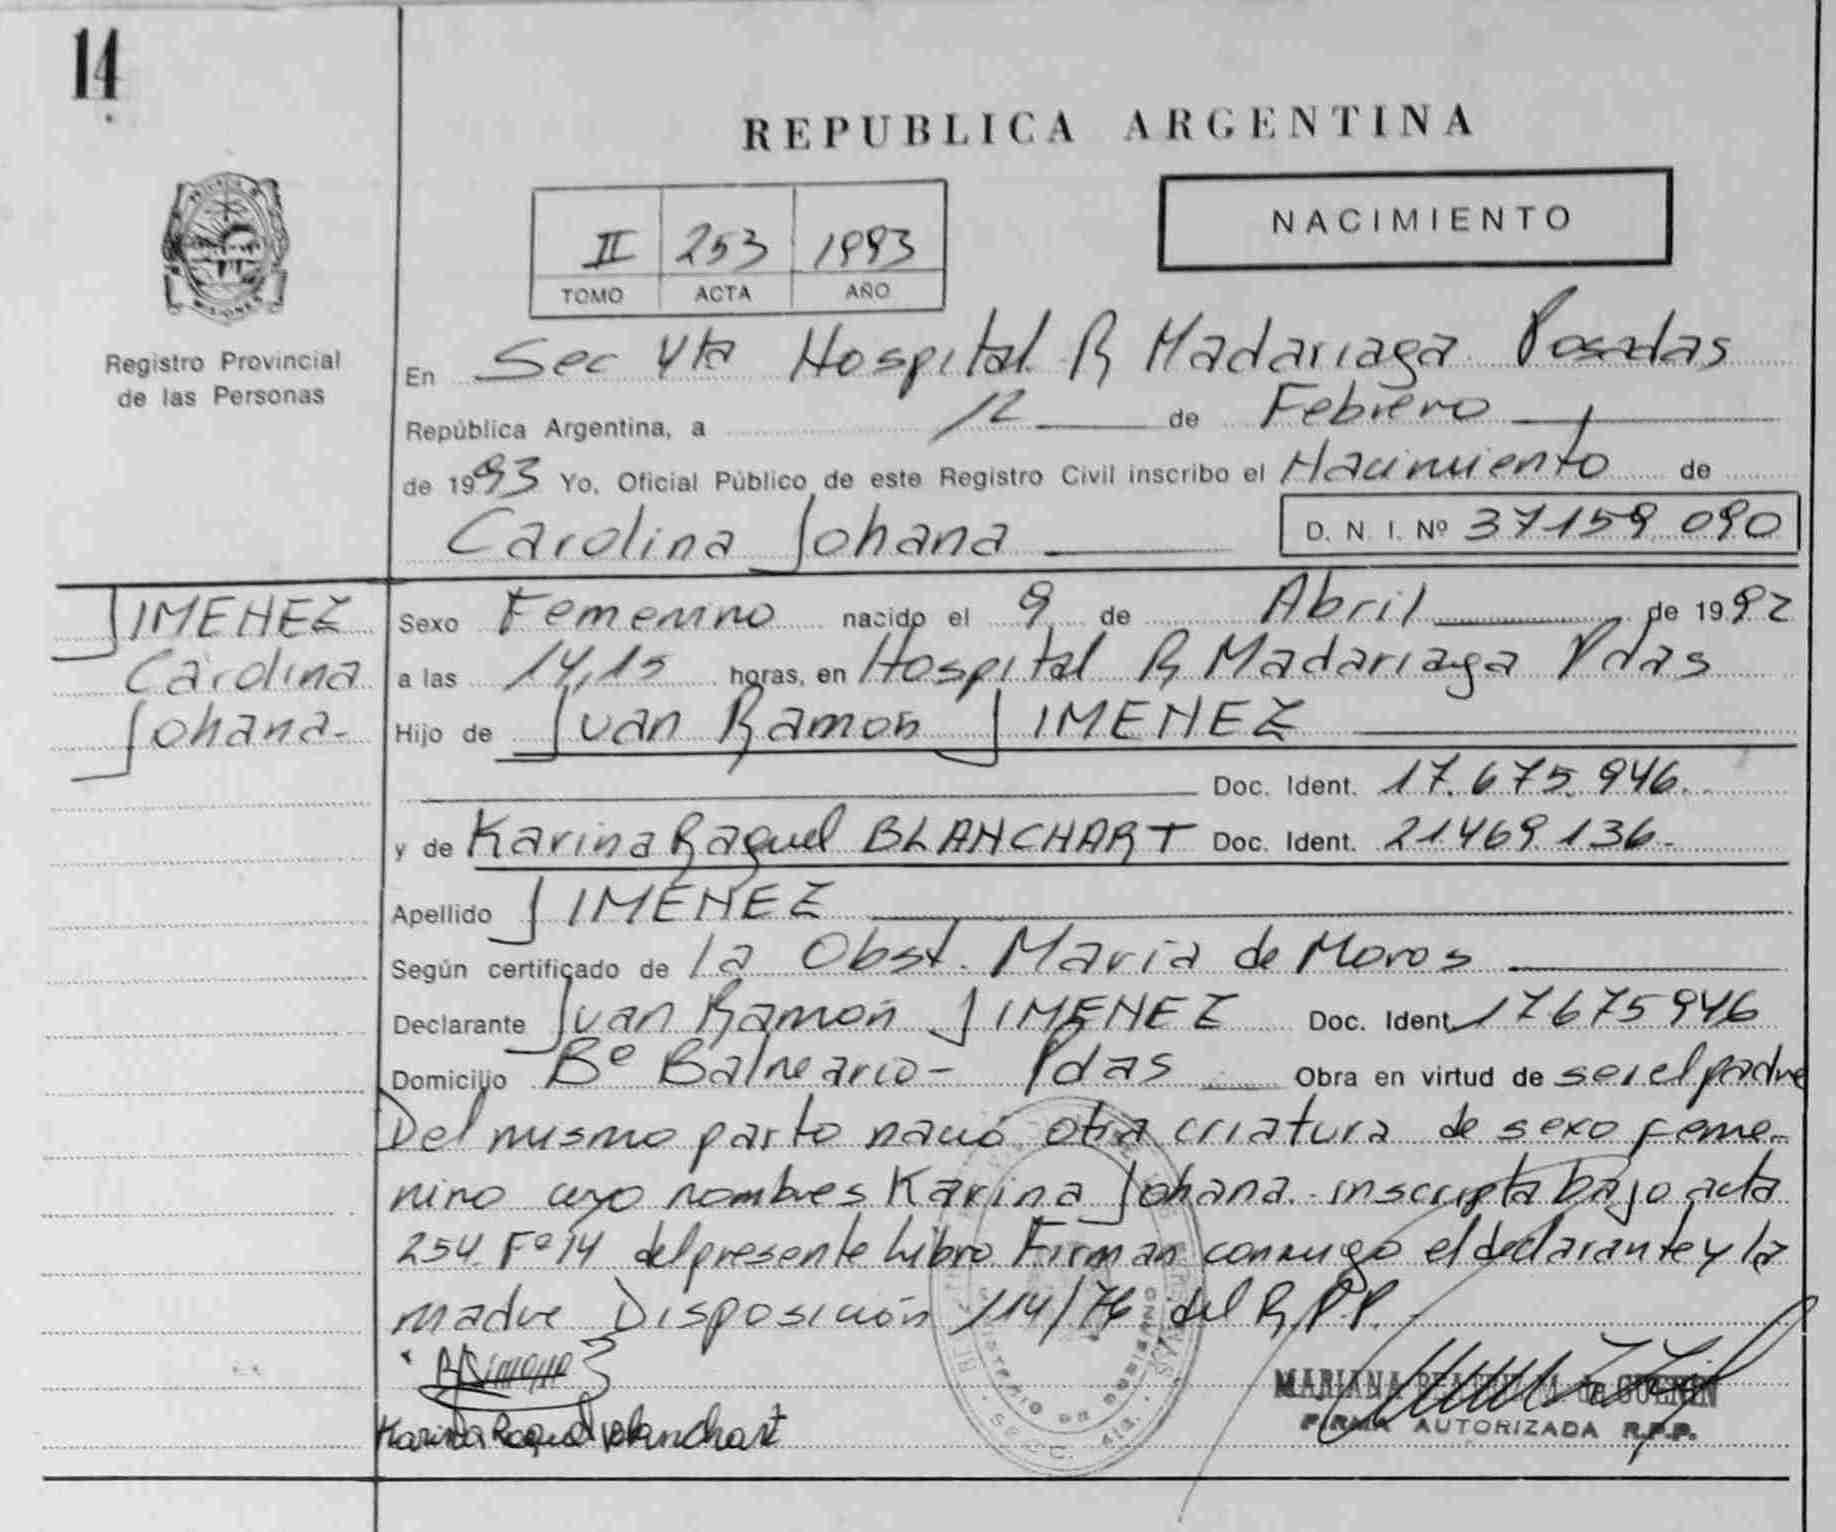 14
REPUBLICA ARGENTINA
NACIMIENTO
II 253 1993
TOMO ACTA AÑO
Registro Provincial
de las Personas
En Sec 4ta Hospital R Madariaga Posadas
República Argentina, a 12 de Febrero
de 1993 Yo, Oficial Público de este Registro Civil inscribo el Nacimiento de
Carolina Johana D. N. I. Nº 37159.090
JIMENEZ
Carolina
Johana-
Sexo Femenino nacido el 9 de Abril de 1992
a las 14,15 horas, en Hospital R Madariaga Pdas
Hijo de Juan Ramón JIMENEZ
Doc. Ident. 17.675.946.
y de Karina Raquel BLANCHART Doc. Ident. 21469136-
Apellido JIMENEZ
Según certificado de la Obst. Maria de Moros
Declarante Juan Ramón JIMENEZ Doc. Ident 17675946
Domicilio Bº Balneario- Pdas Obra en virtud de ser el padre
Del mismo parto nació otra criatura de sexo feme-
nino cuyo nombres Karina Johana inscripta bajo acta
254 Fº 14 del presente libro Firman conmigo el declarante y la
madre Disposición 114/76 del R.P.P.
Karina Raquel Blanchart
MARIANA M de
FIRMA AUTORIZADA R.P.P.